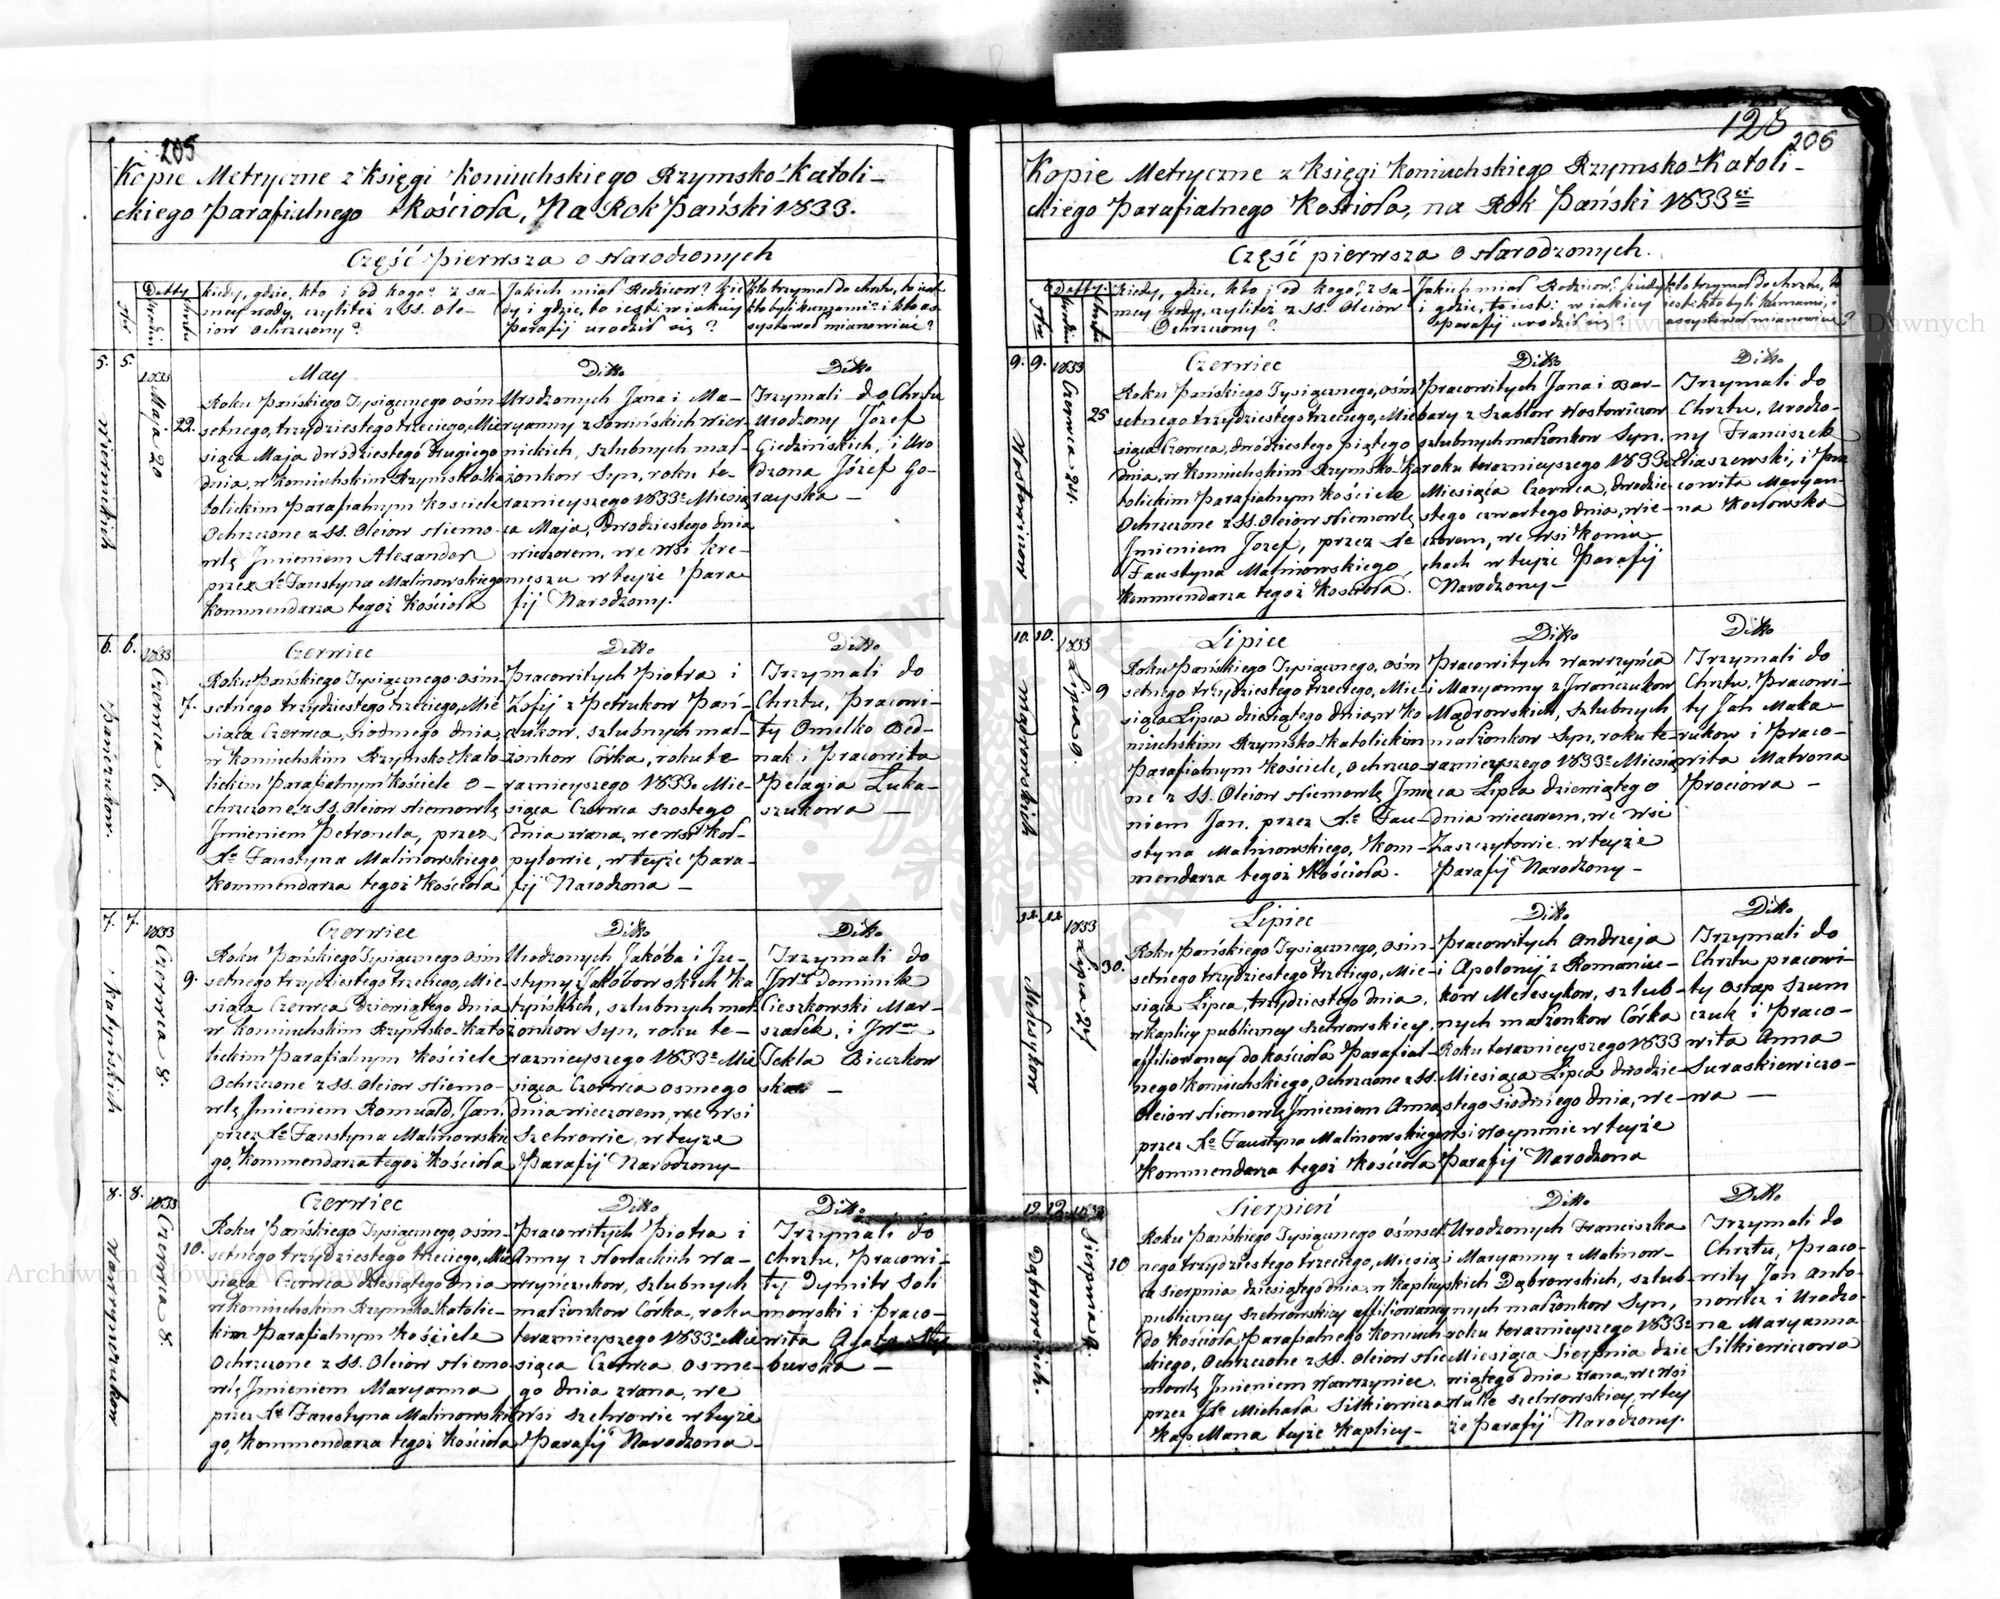 205
Kopie Metryczne z Księgi Koniuchskiego Rzymsko-Katoli-
ckiego Parafialnego Kościoła, Na Rok Pański 1833.
Część pierwsza o Narodzonych
Nro
Datty
Urodzin
Chrztu
Kiedy, gdzie, kto i od kogo? z sa-
mej wody, czyliteż z SS. Ole-
iow Ochrzczony?
Jakich miał Rodzicow? kie-
dy i gdzie, to iest: w iakiey
Parafij urodził się?
Kto trzymał do chrztu, to iest
kto byli kumami? i kto as-
systował mianowicie?
5.
5.
1833
Maja 20
22.
Wiernickich
May
Roku Pańskiego Tysiącznego ośm-
setnego, trzydziestego trzeciego, Mie-
siąca Maja dwódziestego drugiego
dnia, w Koniuchskim Rzymsko-Ka-
tolickim Parafialnym Kosciele
Ochrzczone z SS. Oleiow Niemo-
wlę Jmieniem Alexander
przez Xa Faustyna Malinowskiego
Kommendarza tegoż Kościoła
Ditto
Urodzonych Jana i Ma-
ryanny z Sowińskich Wier-
nickich, szlubnych mał-
żonkow Syn, roku te-
raznieyszego 1833o Miesią-
ca Maja, Dwodziestego dnia
wieczorem, we Wsi Kre-
meszu w teyże Para-
fij Narodzony.
Ditto
Trzymali do Chrztu
Urodzony Józef
Giedzińskich, i Uro-
dzona Józef Go-
rayska —
6.
6.
1833
Czerwca 6.
7.
Pańczukow.
Czerwiec
Roku Pańskiego Tysiącznego ośm-
setnego trzydziestego trzeciego, Mie-
siąca Czerwca, siodmego dnia,
w Koniuchskim Rzymsko-Kato-
lickim Parafialnym Kościele O-
chrzczone z SS. Oleiow Niemowlę
Jmieniem Petronela, przez
Xa Faustyna Malinowskiego,
Kommendarza tegoż Kościoła
Ditto
Pracowitych Piotra i
Zofij z Petrukow Pań-
czukow, szlubnych mał-
żonkow Córka, roku te-
raznieyszego 1833. Mie-
siąca Czerwca szostego
dnia zrana, we wsi Koł-
pytowie, w teyże Para-
fij Narodzona —
Ditto
Trzymali do
Chrztu, Pracowi-
ty Omelko Bed-
nak i Pracowita
Pelagia Luka-
szukowa —
7.
7.
1833
Czerwca 8.
9.
Katyńskich
Czerwiec
Roku Pańskiego Tysiącznego ośm-
setnego trzydziestego trzeciego, Mie-
siąca Czerwca Dziewiątego dnia
w Koniuchskim Rzymsko-Kato-
lickim Parafialnym Kościele
Ochrzczone z SS. Oleiow Niemo-
wlę Jmieniem Romuald, Jan,
przez Xa Faustyna Malinowskie-
go, Kommendarza tegoż Kościoła
Ditto
Urodzonych Jakóba i Ju-
styny z Jakóbowskich Ka-
tyńskich, szlubnych mał-
żonkow Syn, roku te-
raznieyszego 1833o Mie-
siąca Czerwca osmego
dnia wieczorem, we Wsi
Szelwowie, w teyże
Parafij Narodzony —
Ditto
Trzymali do
JWny Dominik
Cieszkowski Mar-
szałek, i JWna
Tekla Bieczkow
ska —
8.
8.
1833
Czerwca 8.
10.
Wawrynczukow
Czerwiec
Roku Pańskiego Tysiącznego, ośm-
setnego trzydziestego trzeciego, Mie-
siąca Czerwca dziesiątego dnia
w Koniuchskim Rzymsko-Katolic-
kim Parafialnym Kościele
Ochrzczone z SS. Oleiow Niemo-
wlę Jmieniem Maryanna,
przez Xa Faustyna Malinowskie-
go, Kommendarza tegoż Kościoła
Ditto
Pracowitych Piotra i
Anny z Nowackich Wa-
wryńczukow, szlubnych
małżonkow Córka, roku
teraznieyszego 1833o Mie-
siąca Czerwca osme-
go dnia zrana, we
Wsi Szelwowie w teyże
Parafij Narodzona —
Ditto
Trzymali do
Chrztu, Pracowi-
ty Dymitr Soli
mowski i Praco-
wita Agata
burska —
125
206
Kopie Metryczne z Księgi Koniuchskiego Rzymsko-Katoli-
ckiego Parafialnego Kościoła, na Rok Pański 1833ci
Część pierwsza o Narodzonych.
Nro
Datty
Urodzin
Chrztu
Kiedy, gdzie, kto i od kogo? z sa-
mey wody, czyliteż z SS. Oleiow
Ochrzczony?
Jakich miał Rodzicow? kiedy
i gdzie, to iest: w iakiey
Parafij urodził się?
Kto trzymał do chrztu, to
iest: kto byli kumami, i
assystował mianowicie?
9.
9.
1833
Czerwca 24.
25
Nostowiczow
Czerwiec
Roku Pańskiego Tysiącznego, ośm-
setnego trzydziestego trzeciego, Mie-
siąca Czerwca, dwódziestego piątego
dnia, w Koniuchskim Rzymsko-Ka-
tolickim Parafialnym Kościele
Ochrzczone z SS. Oleiow Niemowlę
Jmieniem Jozef, przez Xa
Faustyna Malinowskiego,
Kommendarza tegoż Kościoła.
Ditto
Pracowitych Jana i Bar-
bary z Szablow Nostowiczow
szlubnych małżonkow Syn,
roku teraznieyszego 1833o
Miesiąca Czerwca, dwodzie-
stego czwartego dnia, wie-
czorem, we Wsi Koniu-
chach w teyże Parafij
Narodzony —
Ditto
Trzymali do
Chrztu, Urodzo-
ny Franciszek
Eliaszewski, i Pra-
cowita Maryan-
na Kozłowska
10.
10.
1833
Lipca 9.
9
Mądrowskich
Lipiec
Roku Pańskiego Tysiącznego, ośm-
setnego trzydziestego trzeciego, Mie-
siąca Lipca dziewiątego dnia, w Ko-
niuchskim Rzymsko-Katolickim
Parafialnym Kościele, ochrzczo-
ne z SS. Oleiow Niemowlę Jmie-
niem Jan, przez Xa Fau-
styna Malinowskiego, Kom-
mendarza tegoż Kościoła.
Ditto
Pracowitych Wawrzyńca
i Maryanny z Jwańczukow
Mądrowskich, szlubnych
małżonkow Syn, roku te-
raznieyszego 1833o Miesią-
ca Lipca dziewiątego
dnia wieczorem, we wsi
Zaszczytowie w teyże
Parafij Narodzony —
Ditto
Trzymali do
Chrztu, Pracowi-
ty Jan Maka-
rukow i Praco-
wita Matrona
Prociowa —
11.
11.
1833
Lipca 27
30.
Melesykow
Lipiec
Roku Pańskiego Tysiącznego, ośm-
setnego trzydziestego trzeciego, Mie-
siąca Lipca, trzydziestego dnia,
w Kaplicy publiczney Szelwowskiey,
affiliowaney do Kościoła Parafial-
nego Koniuchskiego, Ochrzczone z SS.
Oleiow Niemowlę Jmieniem Anna,
przez Xa Faustyna Malinowskiego
Kommendarza tegoż Kościoła
Ditto
Pracowitych Andrzeja
i Apolonij z Romaniu-
ków Melesykow, szlub-
nych małżonkow Córka
Roku teraznieyszego 1833
Miesiąca Lipca dwodzie-
stego siodmego dnia, we
wsi Woyninie w teyże
Parafij Narodzona
Ditto
Trzymali do
Chrztu pracowi-
ty Ostap Szum
czuk i Praco-
wita Anna
Suraskiewiczo-
wa —
12.
12.
1833
Sierpnia 9.
10
Dąbrowskich.
Sierpień
Roku Pańskiego Tysiącznego ośmset-
nego trzydziestego trzeciego, Miesią-
ca Sierpnia, dziesiątego dnia, w Kaplicy
publiczney Szelwowskiey affiliowaney
do Kościoła Parafialnego Koniuch-
skiego, Ochrzczone z SS. Oleiow Nie-
mowlę Jmieniem Wawrzyniec,
przez Xa Michała Silkiewicza
Kapellana teyże Kaplicy —
Ditto
Urodzonych Franciszka
i Maryanny z Malinow-
skich Dąbrowskich, szlub-
nych małżonkow Syn,
roku teraznieyszego 1833o
Miesiąca Sierpnia dzie
wiątego dnia zrana, we Wsi
Szelwowskiey, w tey
że Parafij Narodzony.
Ditto
Trzymali do
Chrztu, Praco-
wity Jan Anto-
nowicz i Urodzo-
na Maryanna
Silkiewiczowa
Archiwum Główne Akt Dawnych
Archiwum Główne Akt Dawnych